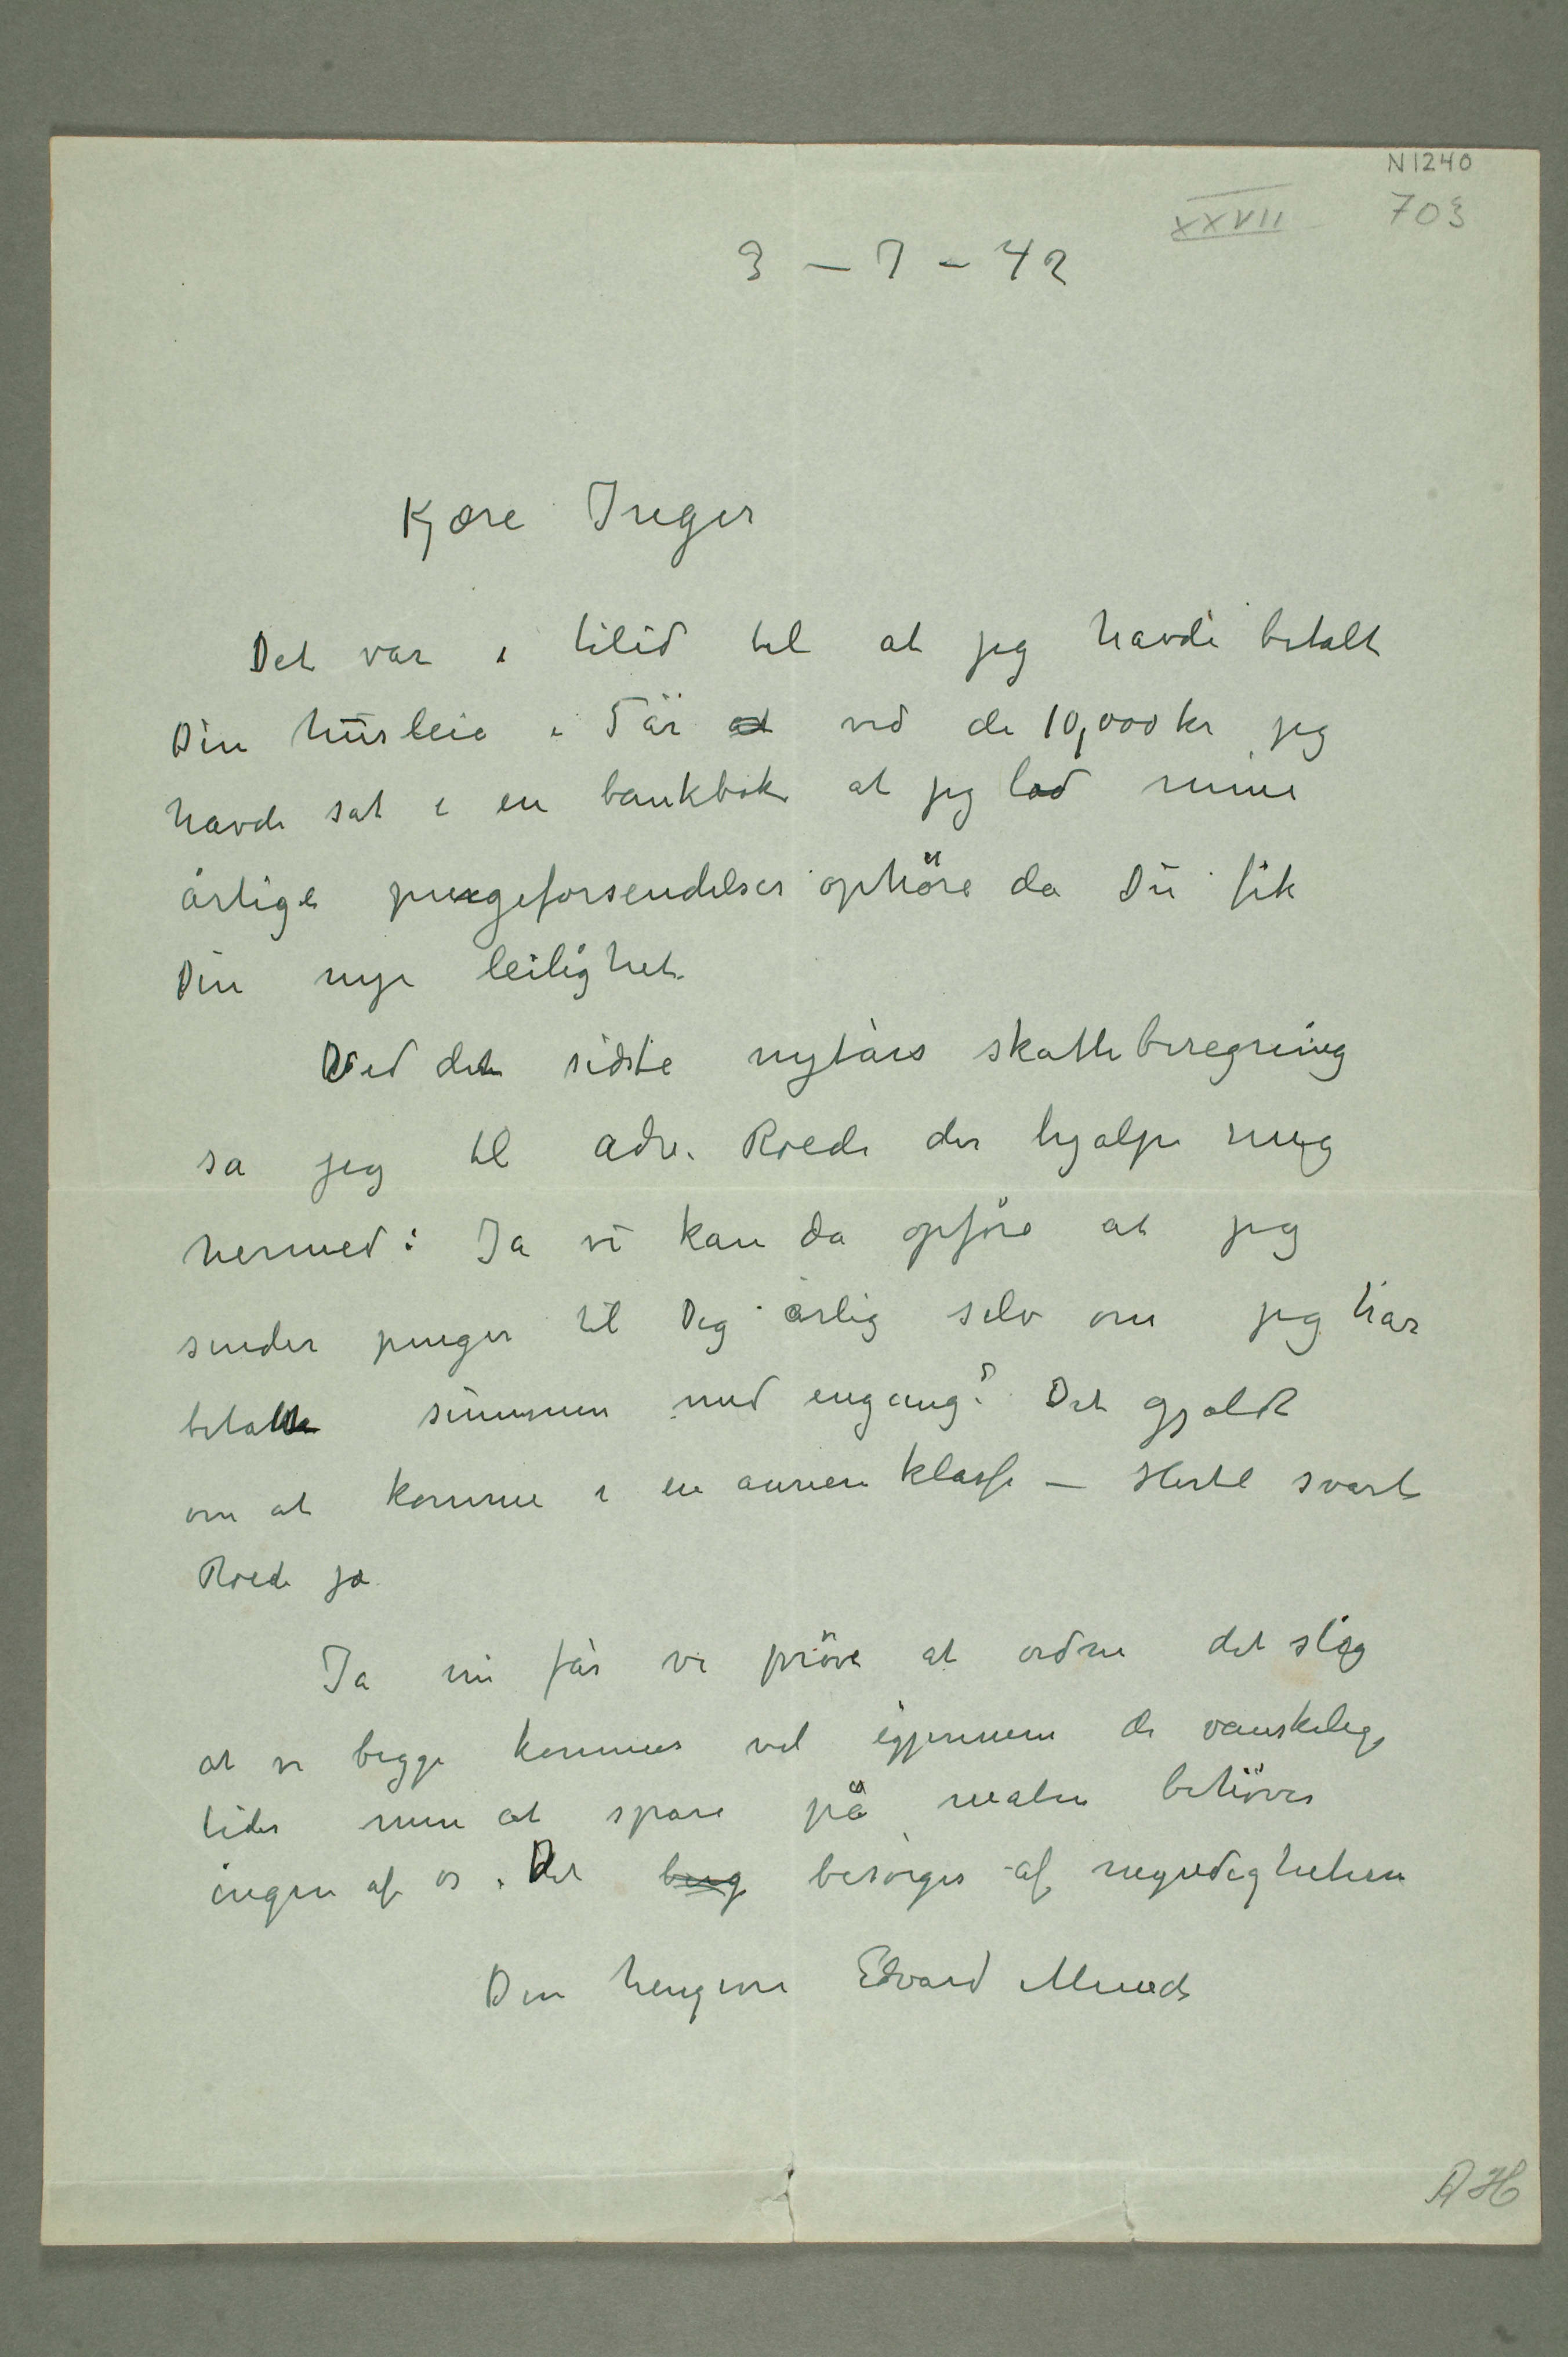 N1240
XXVII 703
3 – 7 – 42
Kjære Inger
Det var i tilid til at jeg havde betalt
Din husleie i 5 år at ved de 10,000 kr jeg
havde sat i en bankbok at jeg lod mine
årlige pengeforsendelser ophöre da Du fik
Din nye leilighet.
Ved det sidste nytårs skatteberegning
sa jeg til adv. Roede der hjalp mig
hermed: Ja vi kan da opföre at jeg
sender penger til Dig årlig selv om jeg har
betalt summen med engang? Det gjaldt
om at komme i en annen klasse – Hertil svart
Roede ja
Ja nu får vi pröve at ordne det slig
at vi begge kommer vel igjennem de vanskelige
tider men at spare på maten behöver
ingen af os. Det berg besörges af myndigheten
Din hengivne Edvard Munch
AH